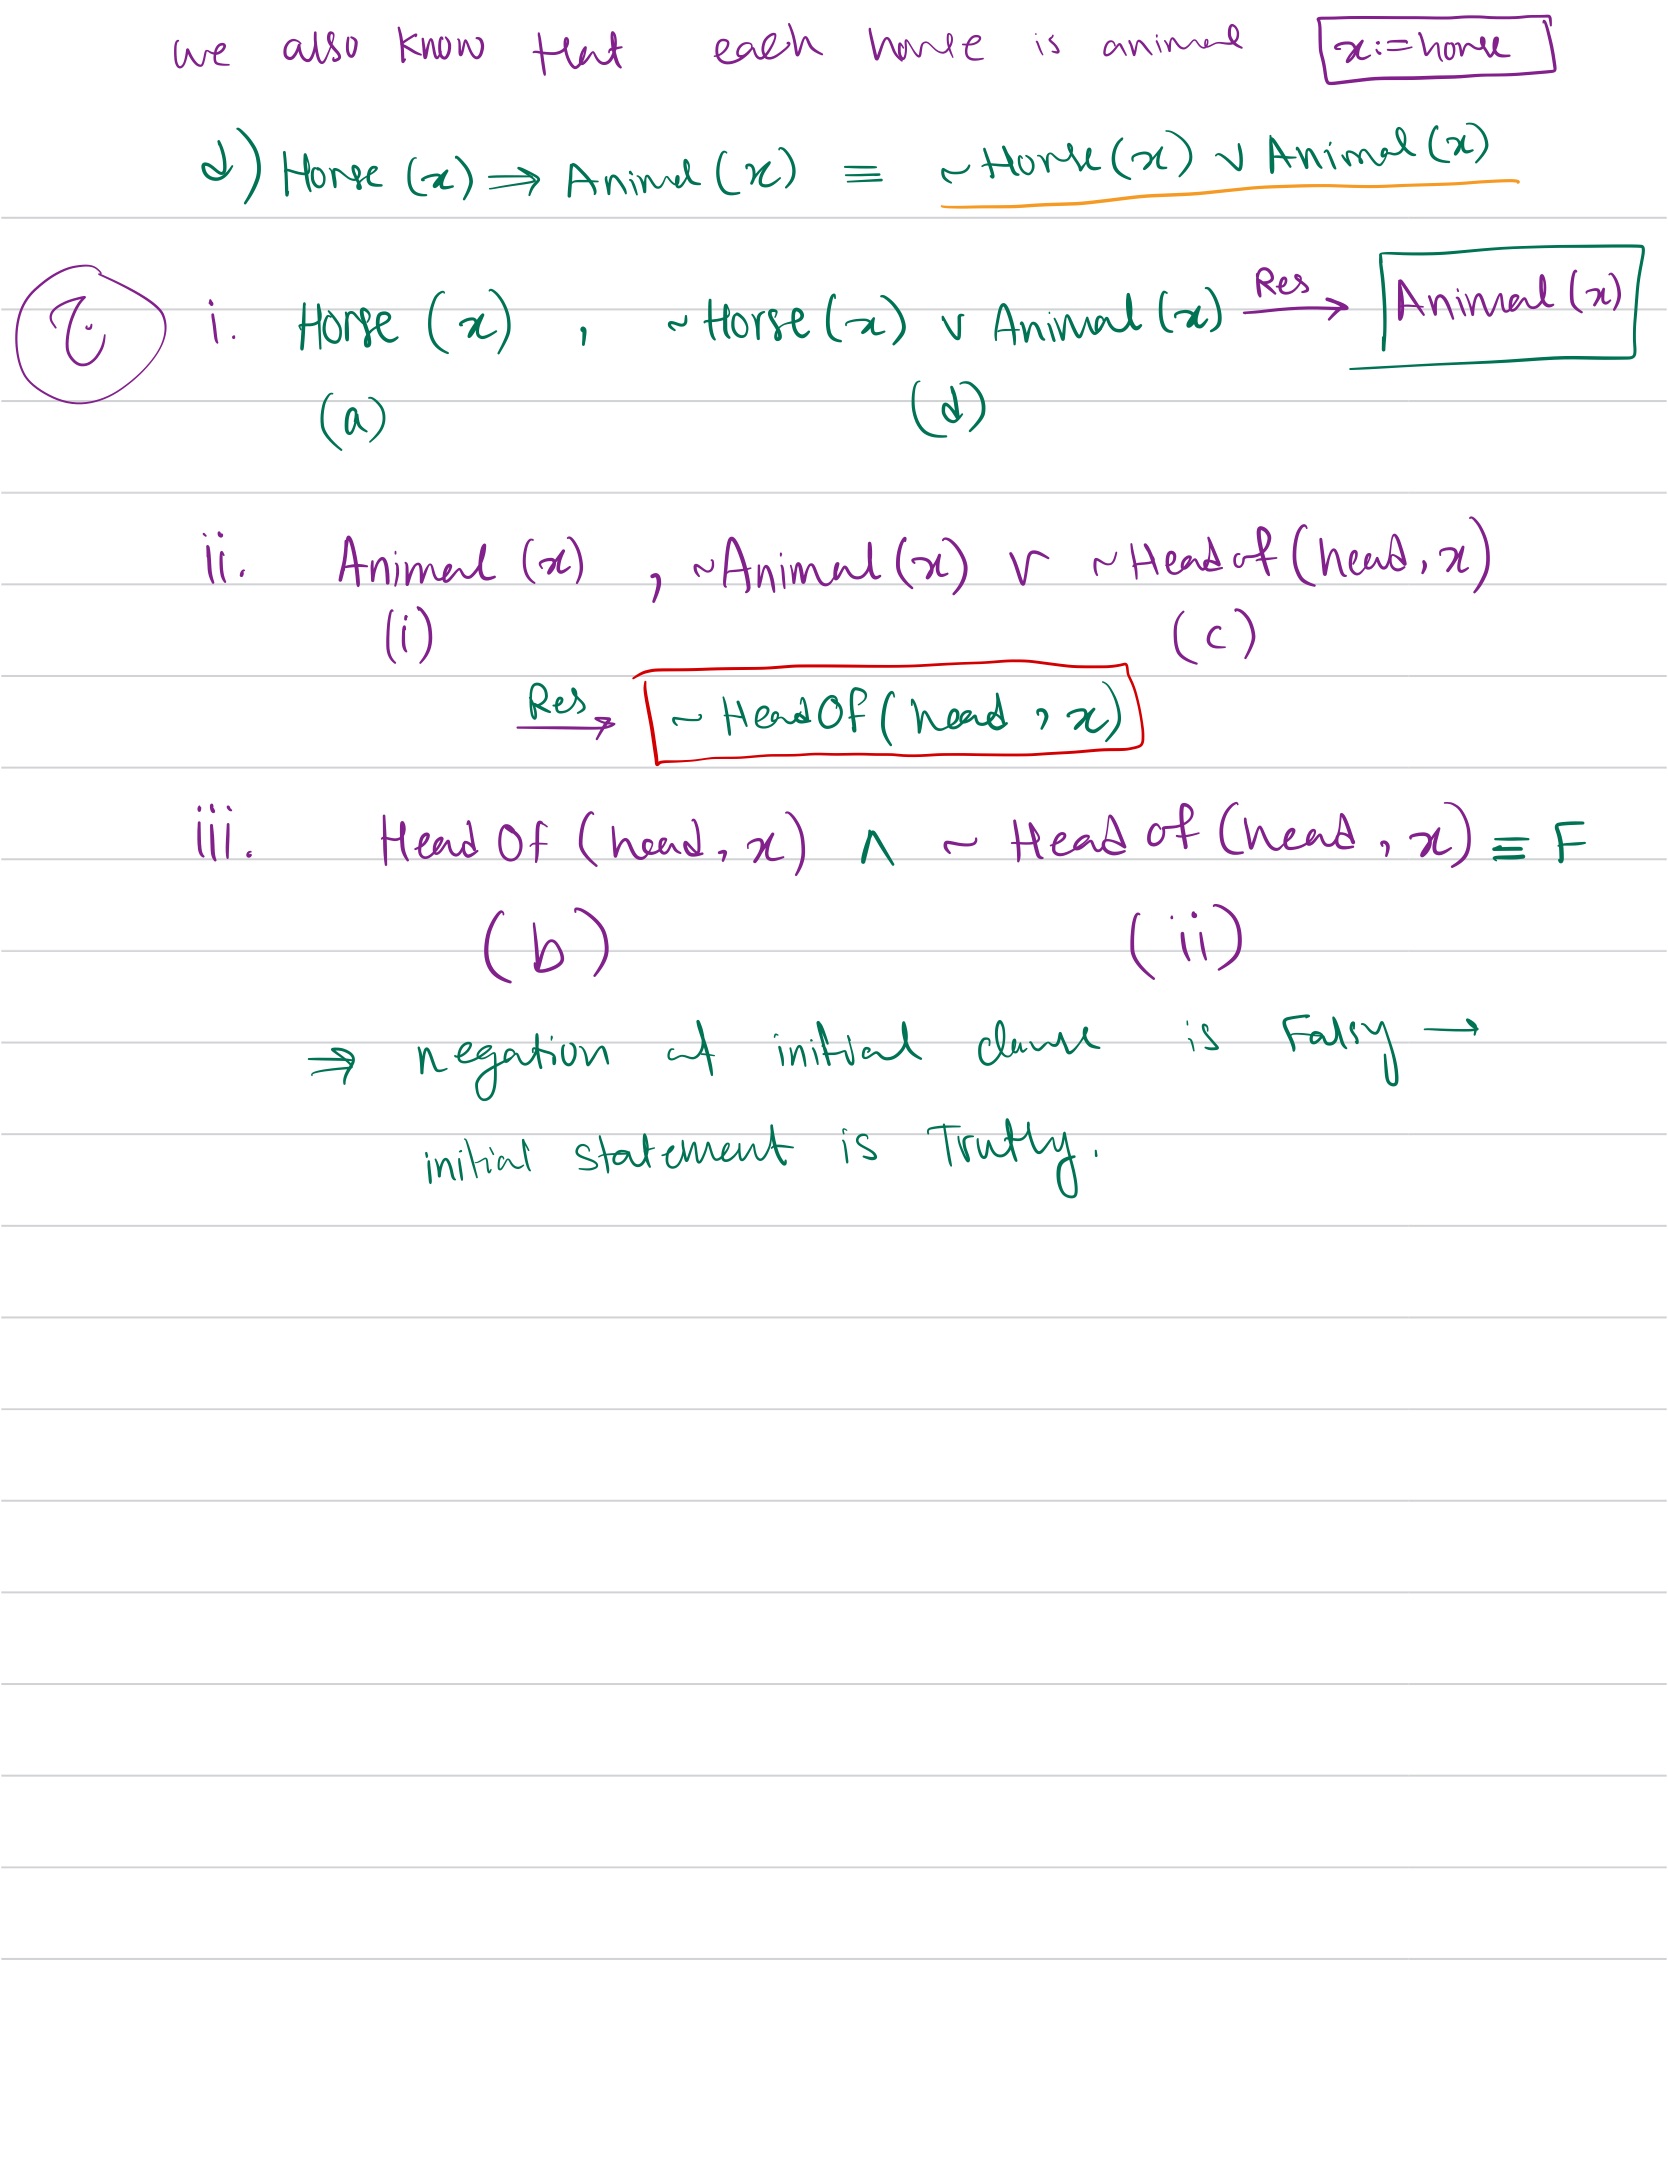 we also know that each horse is animal x:=horse
d) Horse (x) ⇒ Animal (x) ≡ ~Horse(x) ∨ Animal(x)
i. Horse (x) , ~Horse(x) ∨ Animal(x) Res → Animal(x)
(a) (d)
ii. Animal (x) , ~Animal(x) ∨ ~Headof(head, x)
(i) (c)
Res → ~HeadOf(head, x)
iii. HeadOf(head, x) ∧ ~Headof(head, x) ≡ F
(b) (ii)
⇒ negation of initial clause is Falsy →
initial statement is Truthy.